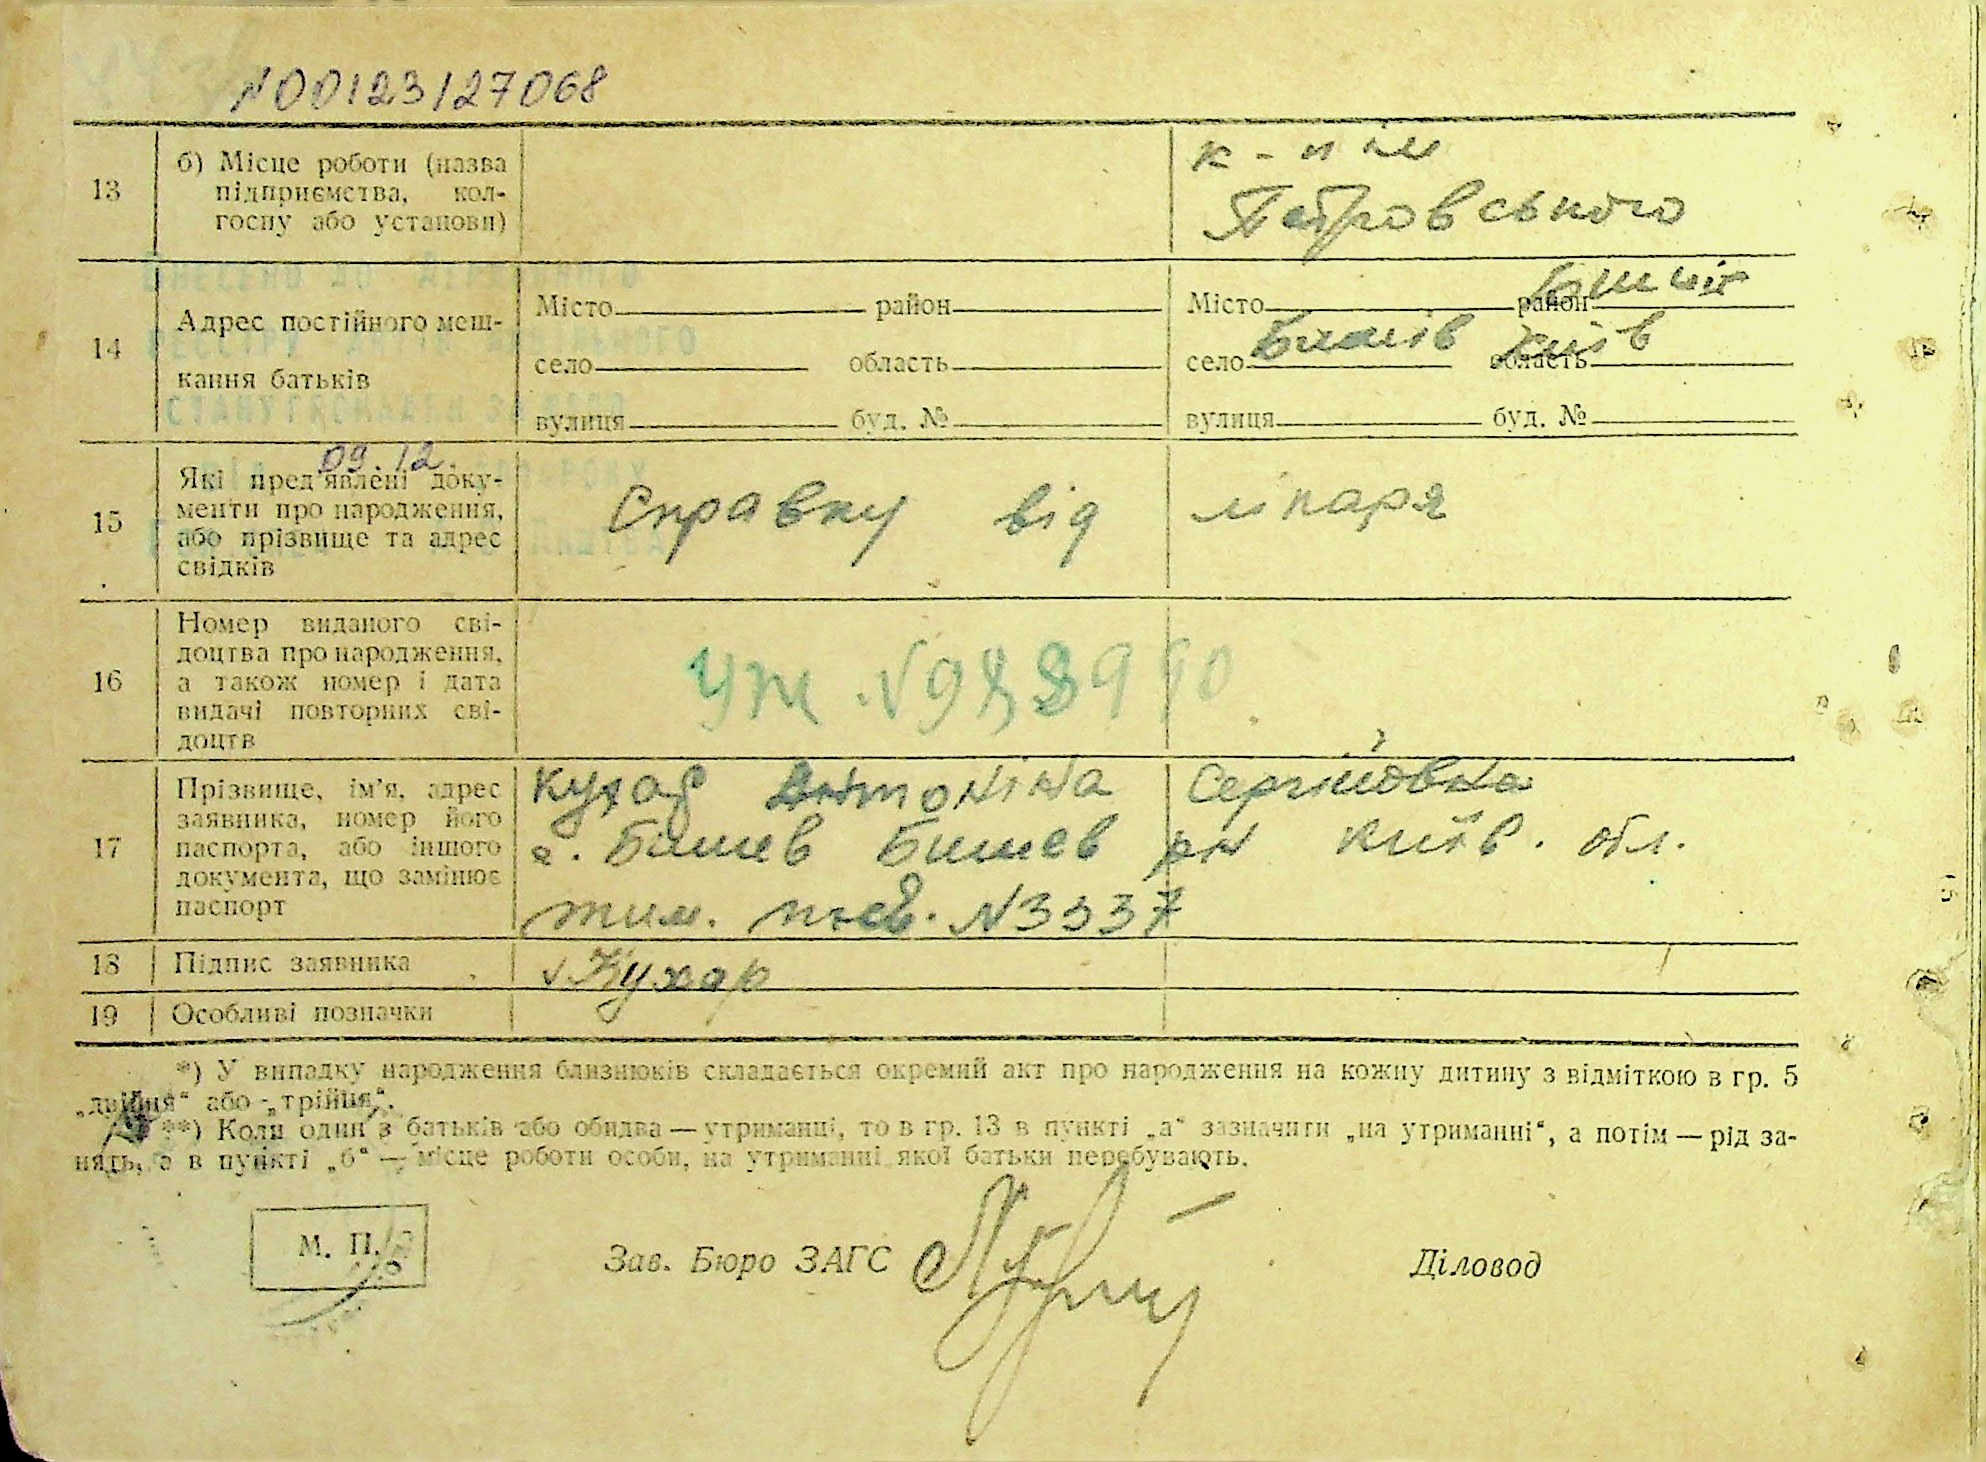 N00123127068
13
б) Місце роботи (назва
підприємства, кол-
госпу або установи)
к-п ім
Петровського
14
Адрес постійного меш-
кання батьків
Місто район
село область
вулиця буд. №
Місто район
село область Київ
вулиця буд. №
09.12.
15
Які пред'явлені доку-
менти про народження,
або прізвище та адрес
свідків
Справку від лікаря
16
Номер виданого сві-
доцтва про народження,
а також номер і дата
видачі повторних сві-
доцтв
17
Прізвище, ім'я, адрес
заявника, номер його
паспорта, або іншого
документа, що замінює
паспорт
Кухар Антоніна Сергіївовна
с. Бишев Бишев рн Київ. обл.
тим. посв. N3337
18
Підпис заявника
Кухар
19
Особливі позначки
*) У випадку народження близнюків складається окремий акт про народження на кожну дитину з відміткою в гр. 5
„двійня“ або „трійня“.
**) Коли один з батьків або обидва — утриманці, то в гр. 13 в пункті „а“ зазначити „на утриманні“, а потім — рід за-
нять, а в пункті „б“ — місце роботи особи, на утриманні якої батьки перебувають.
М. П.
Зав. Бюро ЗАГС
Діловод